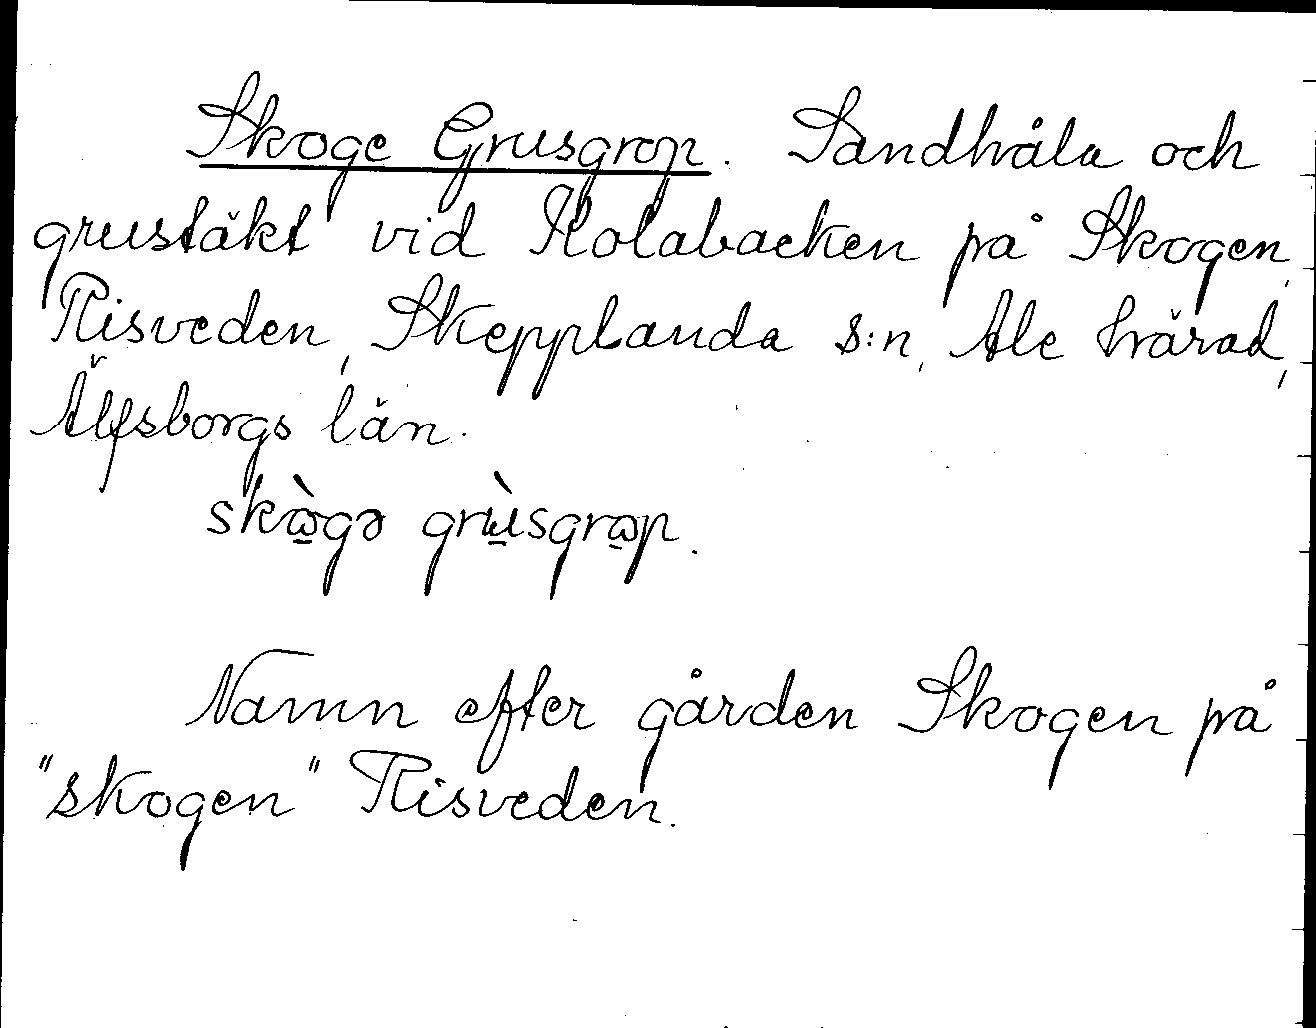 Skoge Grusgrop. Sandhåla och
grustäkt vid Kolabacken på Skogen,
Risveden, Skepplanda s:n, Ale härad,
Älfsborgs län.
skὼ̲gə grù̲sgrω̲p.
Namn efter gården Skogen på
"skogen" Risveden.